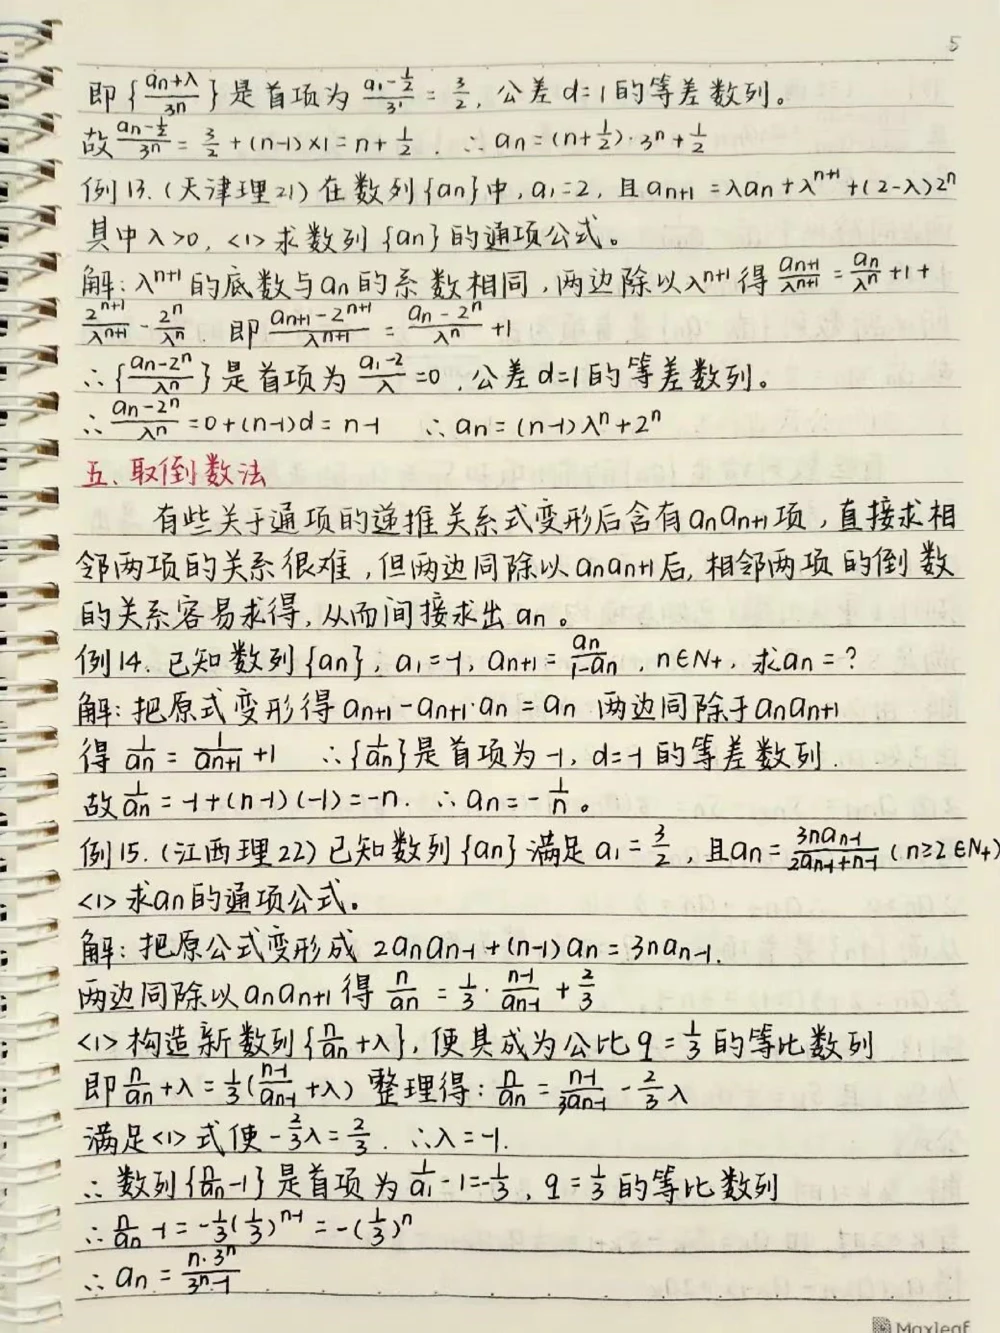 5
即{(an+λ)/3n}是首项为(a1-1/2)/3¹=3/2,公差d=1的等差数列。
故(an-1/2)/3n=3/2+(n-1)×1=n+1/2.∴an=(n+1/2)·3ⁿ+1/2
例13.(天津理21)在数列{an}中,a1=2,且an+1=λan+λⁿ⁺¹+(2-λ)2ⁿ
其中λ>0,<1>求数列{an}的通项公式。
解:λⁿ⁺¹的底数与an的系数相同,两边除以λⁿ⁺¹得an+1/λⁿ⁺¹=an/λⁿ+1+
2ⁿ⁺¹/λⁿ⁺¹-2ⁿ/λⁿ.即(an+1-2ⁿ⁺¹)/λⁿ⁺¹=(an-2ⁿ)/λⁿ+1
∴{(an-2ⁿ)/λⁿ}是首项为(a1-2)/λ=0,公差d=1的等差数列。
∴(an-2ⁿ)/λⁿ=0+(n-1)d=n-1 ∴an=(n-1)λⁿ+2ⁿ
五、取倒数法
有些关于通项的递推关系式变形后含有anan+1项,直接求相
邻两项的关系很难,但两边同除以anan+1后,相邻两项的倒数
的关系容易求得,从而间接求出an。
例14.已知数列{an},a1=-1,an+1=an/(1-an),n∈N+,求an=?
解:把原式变形得an+1-an+1·an=an 两边同除于anan+1
得1/an=1/an+1+1 ∴{1/an}是首项为-1,d=-1的等差数列.
故1/an=-1+(n-1)(-1)=-n.∴an=-1/n。
例15.(江西理22)已知数列{an}满足a1=3/2,且an=3nan-1/(2an-1+n-1)(n≥2∈N+)
<1>求an的通项公式。
解:把原公式变形成2anan-1+(n-1)an=3nan-1.
两边同除以anan+1得n/an=1/3·(n-1)/an-1+2/3
<1>构造新数列{n/an+λ},使其成为公比q=1/3的等比数列
即n/an+λ=1/3((n-1)/an-1+λ)整理得:n/an=(n-1)/3an-1-2/3λ
满足<1>式使-2/3λ=2/3.∴λ=-1.
∴数列{n/an-1}是首项为1/a1-1=-1/3,q=1/3的等比数列
∴n/an-1=-1/3(1/3)ⁿ⁻¹=-(1/3)ⁿ
∴an=n·3ⁿ/(3ⁿ-1)
Maxleaf